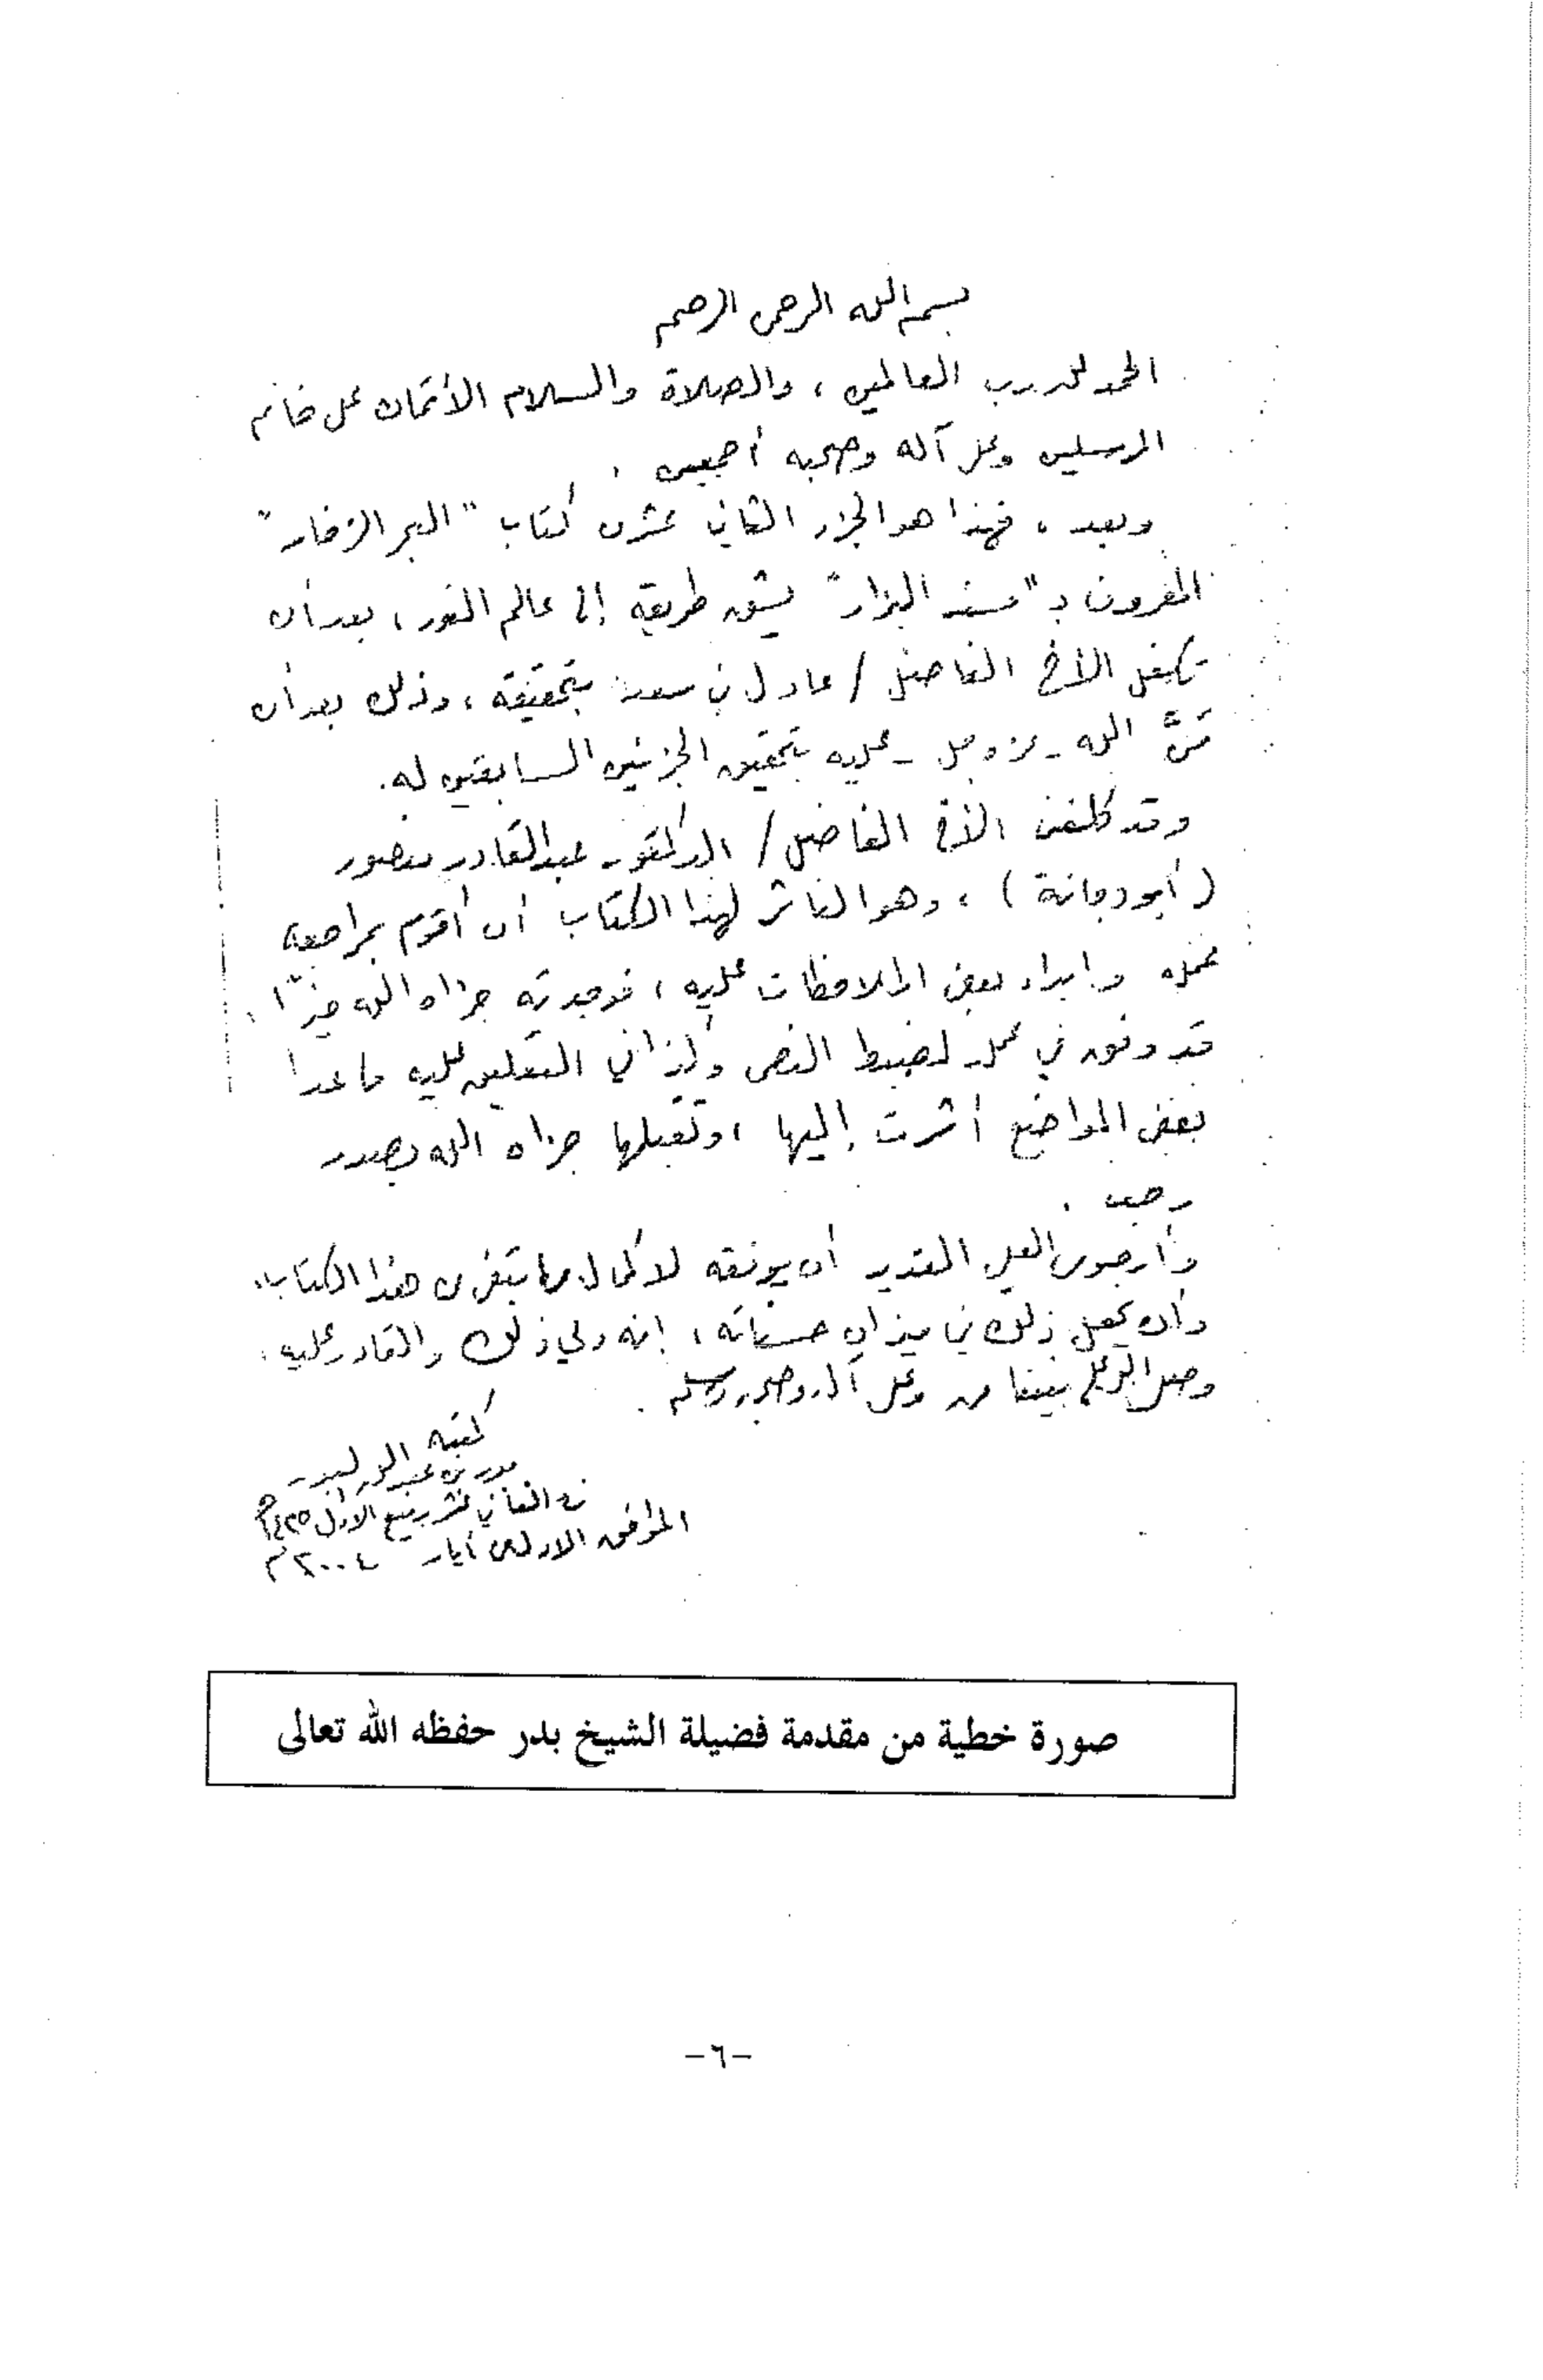 بسم الله الرحمن الرحيم
الحمد لله رب العالمين ، والصلاة والسلام الأتمان على خاتم
المرسلين وعلى آله وصحبه أجمعين .
وبعد ، فهذا هو الجزء الثاني عشر من كتاب " البحر الزخار "
المعروف بـ " مسند البزار " يشق طريقه إلى عالم النور ، بعد أن
تكفل الأخ الفاضل / عادل بن سعد بتحقيقه ، وذلك بعد أن
منَّ الله - عز وجل - عليه بتحقيق الجزئين السابقين له .
وقد كلفني الأخ الفاضل / الدكتور عبد القادر منصور
( أبو دجانة ) ، وهو الناشر لهذا الكتاب أن أقوم بمراجعة
عمله وإبداء بعض الملاحظات عليه ، فوجدته جزاه الله خيرًا ،
قد وفق في عمله لضبط النص وكذا في التعليق عليه ما عدا
بعض المواضع أشرت إليها ، وتقبلها جزاه الله بصدر
رحب .
وأرجو من العلي القدير أن يوفقه لإكمال ما تبقى من هذا الكتاب .
وأن يجعل ذلك في ميزان حسناته ، إنه ولي ذلك والقادر عليه .
وصلى الله على نبينا محمد وعلى آله وصحبه وسلم .
كتبه
بدر بن عبد الله البدر
في الثاني عشر ربيع الأول ١٤٢٥ هـ
الموافق الأول من أيار ٢٠٠٤ م
صورة خطية من مقدمة فضيلة الشيخ بدر حفظه الله تعالى
-٦-